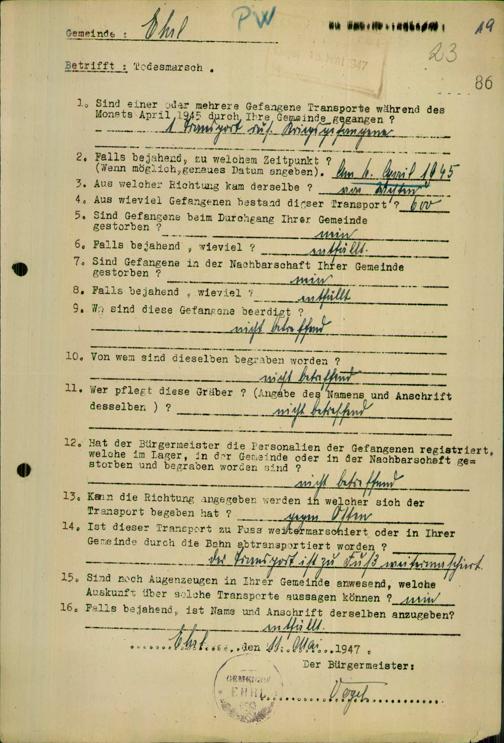 PW
19
Gemeinde : Ehrl
23
MAI 1947
Betrifft : Todesmarsch .
86
1. Sind einer oder mehrere Gefangene Transporte während des
Monats April 1945 durch Ihre Gemeinde gegangen ?
1 Transport russ. Kriegsgefangene
2. Falls bejahend, zu welchem Zeitpunkt ?
(Wenn möglich, genaues Datum angeben). Am 6. April 1945
3. Aus welcher Richtung kam derselbe ? von Westen
4. Aus wieviel Gefangenen bestand dieser Transport ? 600
5. Sind Gefangene beim Durchgang Ihrer Gemeinde
gestorben ? nein
6. Falls bejahend , wieviel ? entfällt.
7. Sind Gefangene in der Nachbarschaft Ihrer Gemeinde
gestorben ? nein
8. Falls bejahend , wieviel ? entfällt
9. Wo sind diese Gefangene beerdigt ?
nicht betreffend
10. Von wem sind dieselben begraben worden ?
nicht betreffend
11. Wer pflegt diese Gräber ? (Angabe des Namens und Anschrift
desselben ) ? nicht betreffend
12. Hat der Bürgermeister die Personalien der Gefangenen registriert,
welche im Lager, in der Gemeinde oder in der Nachbarschaft ge=
storben und begraben worden sind ?
nicht betreffend
13. Kann die Richtung angegeben werden in welcher sich der
Transport begeben hat ? gegen Osten
14. Ist dieser Transport zu Fuss weitermarschiert oder in Ihrer
Gemeinde durch die Bahn abtransportiert worden ?
der Transport ist zu Fuß weitermarschiert.
15. Sind noch Augenzeugen in Ihrer Gemeinde anwesend, welche
Auskunft über solche Transporte aussagen können ? nein
16. Falls bejahend, ist Name und Anschrift derselben anzugeben?
entfällt.
Ehrl den 11. Mai 1947.
Der Bürgermeister:
GEMEINDE
EHRL
Vogel